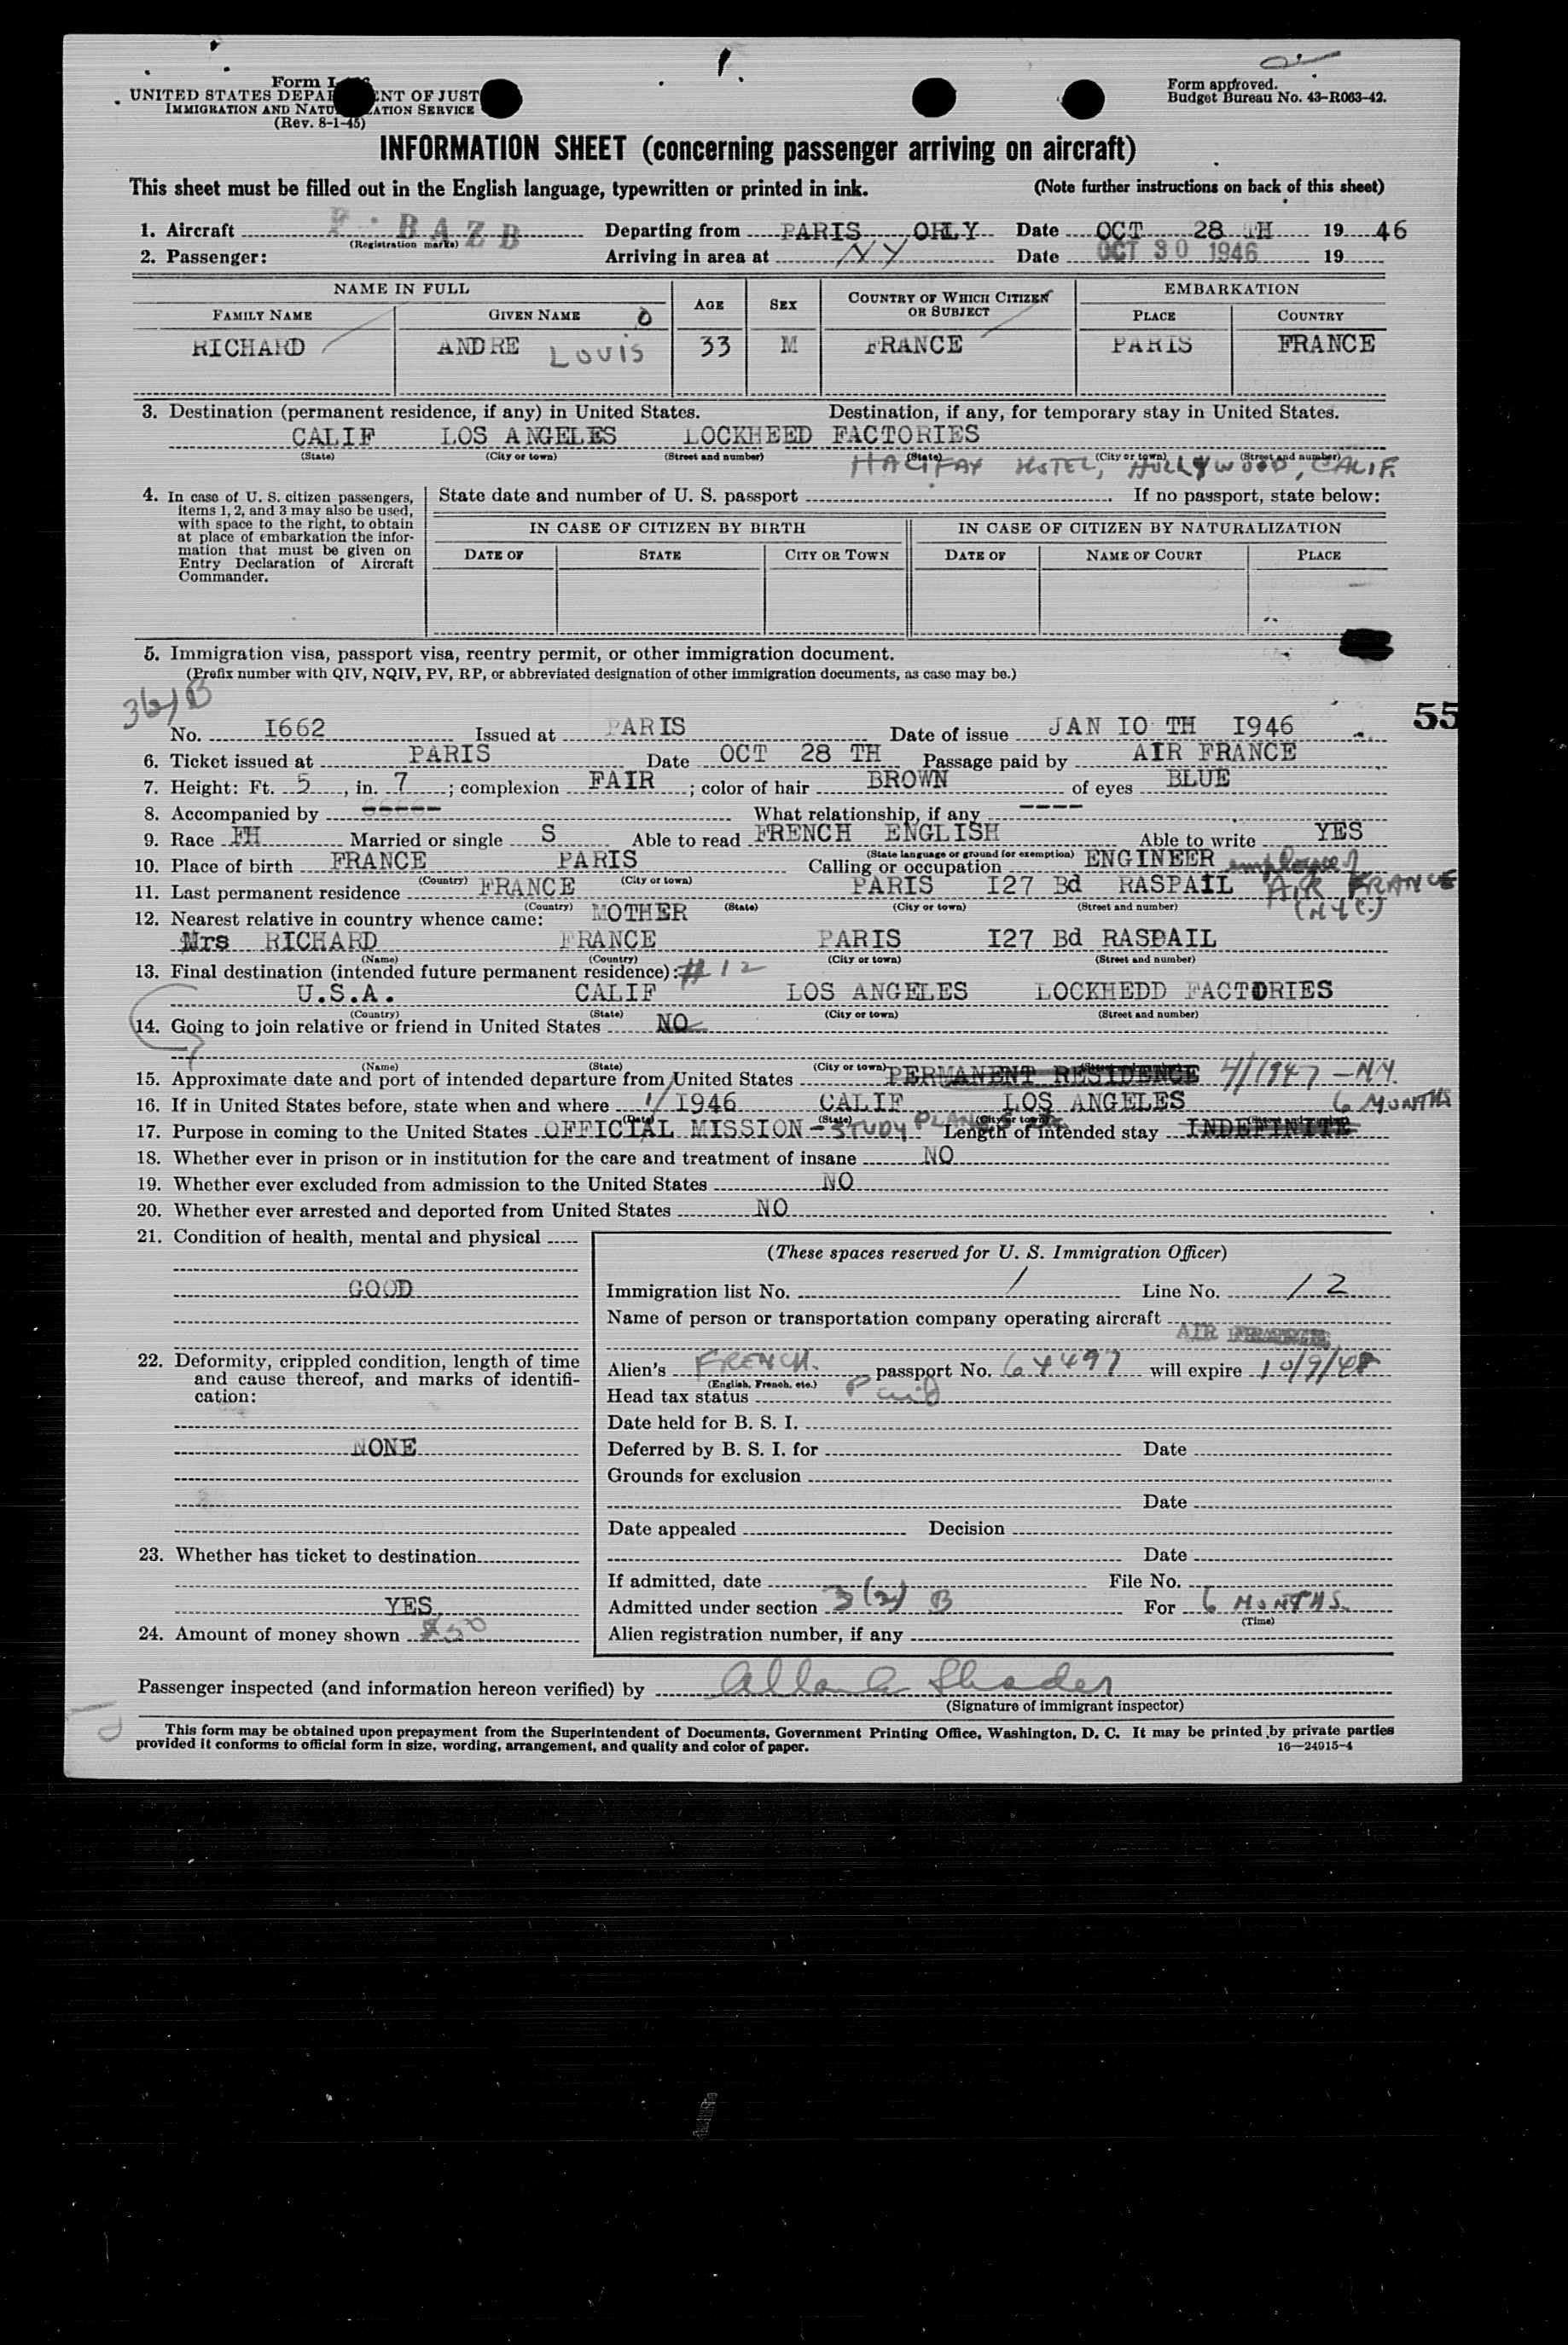 Form I-
UNITED STATES DEPA ENT OF JUST
IMMIGRATION AND NATU ATION SERVICE
(Rev. 8-1-45)
Form approved.
Budget Bureau No. 43-R063-42.
INFORMATION SHEET (concerning passenger arriving on aircraft)
This sheet must be filled out in the English language, typewritten or printed in ink. (Note further instructions on back of this sheet)
1. Aircraft F-BAZB Departing from PARIS ORLY Date OCT 28 TH 19 46
(Registration marks)
2. Passenger: Arriving in area at NY Date OCT 30 1946 19
NAME IN FULL AGE SEX COUNTRY OF WHICH CITIZEN OR SUBJECT EMBARKATION
FAMILY NAME GIVEN NAME PLACE COUNTRY
RICHARD ANDRE LOUIS 33 M FRANCE PARIS FRANCE
3. Destination (permanent residence, if any) in United States. Destination, if any, for temporary stay in United States.
CALIF LOS ANGELES LOCKHEED FACTORIES
(State) (City or town) (Street and number) (State) (City or town) (Street and number)
HALIFAX HOTEL, HOLLYWOOD, CALIF.
4. In case of U. S. citizen passengers, items 1, 2, and 3 may also be used, with space to the right, to obtain at place of embarkation the information that must be given on Entry Declaration of Aircraft Commander.
State date and number of U. S. passport If no passport, state below:
IN CASE OF CITIZEN BY BIRTH IN CASE OF CITIZEN BY NATURALIZATION
DATE OF STATE CITY OR TOWN DATE OF NAME OF COURT PLACE
5. Immigration visa, passport visa, reentry permit, or other immigration document.
(Prefix number with QIV, NQIV, PV, RP, or abbreviated designation of other immigration documents, as case may be.)
55
No. I662 Issued at PARIS Date of issue JAN IO TH I946
6. Ticket issued at PARIS Date OCT 28 TH Passage paid by AIR FRANCE
7. Height: Ft. 5, in. 7; complexion FAIR; color of hair BROWN of eyes BLUE
8. Accompanied by ----- What relationship, if any ----
9. Race FH Married or single S Able to read FRENCH ENGLISH Able to write YES
(State language or ground for exemption)
10. Place of birth FRANCE PARIS Calling or occupation ENGINEER employee of
(Country) (City or town)
11. Last permanent residence FRANCE PARIS I27 Bd RASPAIL AIR FRANCE
(Country) (State) (City or town) (Street and number) (NYC.)
12. Nearest relative in country whence came: MOTHER
Mrs RICHARD FRANCE PARIS I27 Bd RASPAIL
(Name) (Country) (City or town) (Street and number)
13. Final destination (intended future permanent residence): #12
U.S.A. CALIF LOS ANGELES LOCKHEDD FACTORIES
(Country) (State) (City or town) (Street and number)
14. Going to join relative or friend in United States NO
(Name) (State) (City or town) (Street and number)
15. Approximate date and port of intended departure from United States PERMANENT RESIDENCE 4/1947 - N.Y.
16. If in United States before, state when and where 1/ I946 CALIF LOS ANGELES
(Date) (State) (City or town)
6 MONTHS
17. Purpose in coming to the United States OFFICIAL MISSION - STUDY Length of intended stay INDEFINITE
18. Whether ever in prison or in institution for the care and treatment of insane NO
19. Whether ever excluded from admission to the United States NO
20. Whether ever arrested and deported from United States NO
21. Condition of health, mental and physical
GOOD
22. Deformity, crippled condition, length of time and cause thereof, and marks of identification:
NONE
23. Whether has ticket to destination
YES
24. Amount of money shown $50
(These spaces reserved for U. S. Immigration Officer)
Immigration list No. 1 Line No. 12
Name of person or transportation company operating aircraft
AIR FRANCE
Alien's FRENCH. passport No. 64497 will expire 10/9/48
(English, French, etc.)
Head tax status Paid
Date held for B. S. I.
Deferred by B. S. I. for Date
Grounds for exclusion
Date
Date appealed Decision
Date
If admitted, date File No.
Admitted under section 3(2) B For 6 MONTHS.
(Time)
Alien registration number, if any
Passenger inspected (and information hereon verified) by
(Signature of immigrant inspector)
This form may be obtained upon prepayment from the Superintendent of Documents, Government Printing Office, Washington, D. C. It may be printed by private parties
provided it conforms to official form in size, wording, arrangement, and quality and color of paper. 16—24915-4